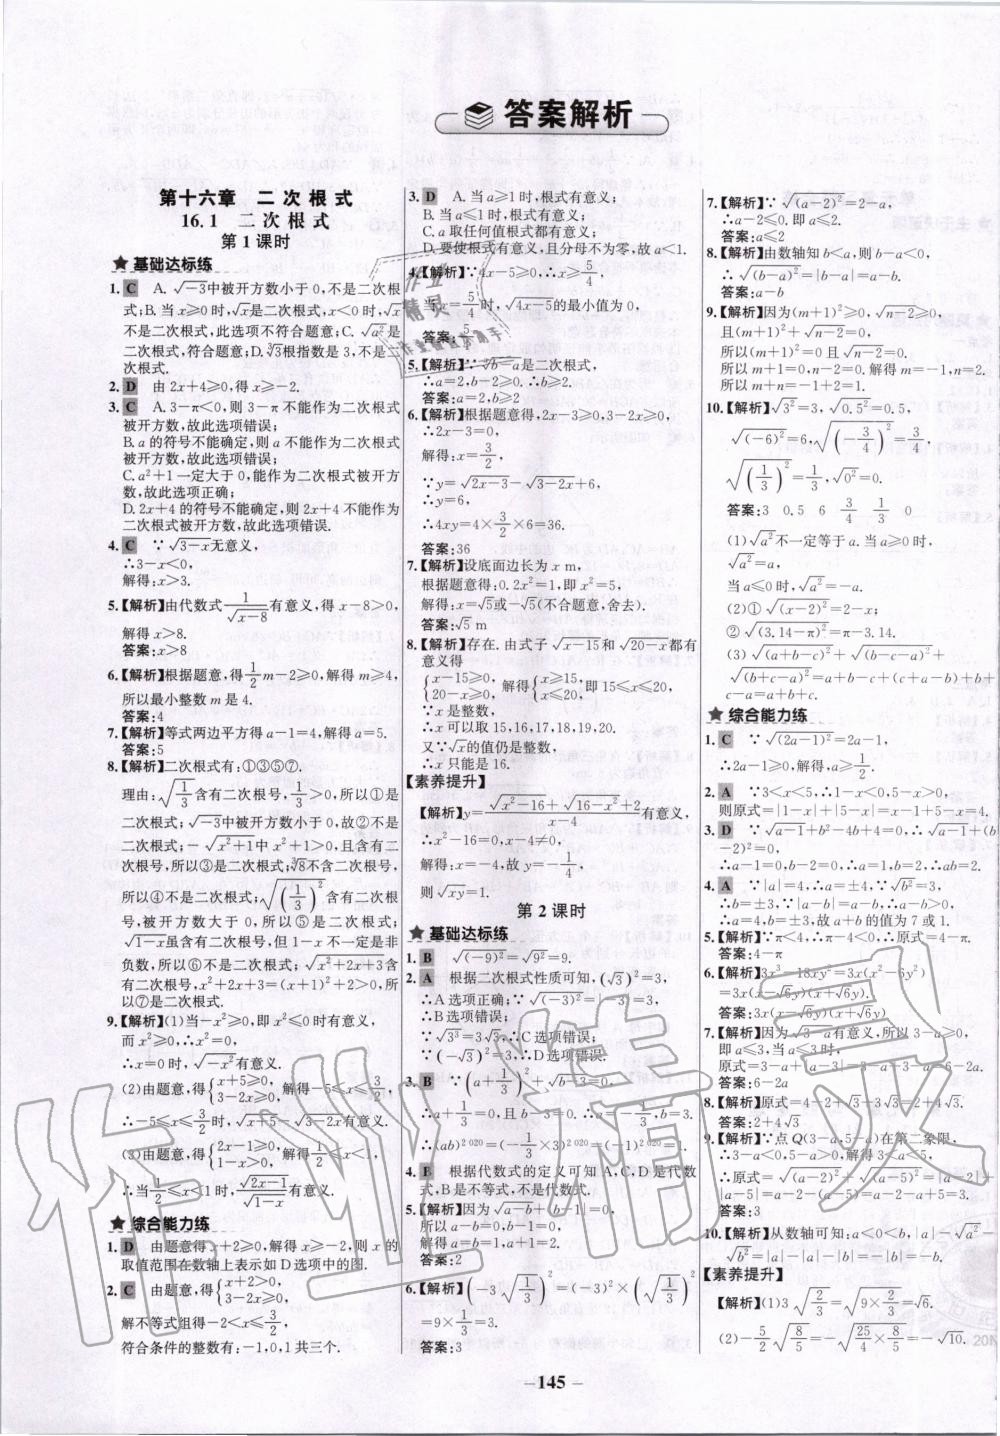 答案解析
第十六章 二次根式
16.1 二次根式
第1课时
★基础达标练
1. C A.√-3中被开方数小于0,不是二次根
式;B.当x≥0时,√x是二次根式,当x<0时,√x
不是二次根式,此选项不符合题意;C.√a²是
二次根式,符合题意;D.∛3根指数是3,不是二
次根式.
2. D 由2x+4≥0,得x≥-2.
3. C A.3-π<0,则3-π不能作为二次根式
被开方数,故此选项错误;
B.a的符号不能确定,则a不能作为二次根式
被开方数,故此选项错误;
C.a²+1一定大于0,能作为二次根式被开方
数,故此选项正确;
D.2x+4的符号不能确定,则2x+4不能作为
二次根式被开方数,故此选项错误.
4. C ∵√3-x无意义,
∴3-x<0,
解得:x>3.
5.【解析】由代数式1/√x-8有意义,得x-8>0,
解得x>8.
答案:x>8
6.【解析】根据题意,得1/2m-2≥0,解得m≥4,
所以最小整数m是4.
答案:4
7.【解析】等式两边平方得a-1=4,解得a=5.
答案:5
8.【解析】二次根式有:①③⑤⑦.
理由:√1/3含有二次根号,1/3>0,所以①是
二次根式;√-3中被开方数小于0,故②不是
二次根式;-√x²+1中x²+1>0,且含有二
次根号,所以③是二次根式;∛8不含有二次根
号,所以④不是二次根式;√(1/3)²含有二次根
号,被开方数大于0,所以⑤是二次根式;
√1-x虽含有二次根号,但1-x不一定是非
负数,所以⑥不是二次根式;√x²+2x+3含
有二次根号,x²+2x+3=(x+1)²+2>0,所
以⑦是二次根式.
9.【解析】(1)当-x²≥0,即x²≤0时有意义,
而x²≥0,
∴x=0时,√-x²有意义.
(2)由题意,得{x+5≥0, 3-2x≥0, 解得-5≤x≤3/2,
∴-5≤x≤3/2时,√x+5-√3-2x有意义.
(3)由题意,得{2x-1≥0, 1-x>0, 解得1/2≤x<1,
∴当1/2≤x<1时,√2x-1/√1-x有意义.
★综合能力练
1. D 由题意得x+2≥0,解得x≥-2,则x的
取值范围在数轴上表示如D选项中的图.
2. C 由题意,得{x+2>0, 3-2x≥0,
解不等式组得-2<x≤3/2,
符合条件的整数有:-1,0,1共三个.
3. D A.当a≥1时,根式有意义;
B.当a≤1时,根式有意义;
C.a取任何值根式都有意义;
D.要使根式有意义,且分母不为零,故a<1.
4.【解析】∵4x-5≥0,∴x≥5/4
当x=5/4时,√4x-5的最小值为0.
答案:5/4
5.【解析】∵ᵃ√b-a是二次根式,
∴a=2,b-2≥0.∴b≥2.
答案:a=2,b≥2
6.【解析】根据题意得,2x-3≥0,3-2x≥0,
∴2x-3=0,
解得:x=3/2,
∵y=√2x-3-√3-2x+6,
∴y=6,
∴4xy=4×3/2×6=36.
答案:36
7.【解析】设底面边长为x m,
根据题意得:0.2x²=1,即x²=5,
解得:x=√5或-√5(不合题意,舍去).
答案:√5 m
8.【解析】存在.由式子√x-15和√20-x都有
意义得
{x-15≥0, 20-x≥0, 解得{x≥15, x≤20, 即15≤x≤20,
∵x是整数,
∴x可以取15,16,17,18,19,20.
又∵√x的值仍是整数,
∴x只能是16.
【素养提升】
【解析】y=√x²-16+√16-x²+2/x-4有意义,
∴x²-16=0,x-4≠0,
解得:x=-4,故y=-1/4,
则√xy=1.
第2课时
★基础达标练
1. B √(-9)²=√9²=9.
2. A 根据二次根式性质可知,(√3)²=3,
∴A选项正确;∵√(-3)²=|-3|=3,
∴B选项错误;
∵√3³=3√3,∴C选项错误;
∵(-√3)²=3,∴D选项错误.
3. B ∵(a+1/3)²+√b-3=0,
∴a+1/3=0,且b-3=0.∴a=-1/3,b=3.
∴(ab)²⁰²⁰=(-1/3×3)²⁰²⁰=(-1)²⁰²⁰=1.
4. B 根据代数式的定义可知A,C,D是代数
式,B是不等式,不是代数式.
5.【解析】∵√a-b+|b-1|=0,
所以a-b=0,b-1=0,
解得a=1,b=1.∴a+1=2.
答案:2
6.【解析】(-3√1/3)²=(-3)²×(√1/3)²
=9×1/3=3.
答案:3
7.【解析】∵√(a-2)²=2-a,
∴a-2≤0.即a≤2.
答案:a≤2
8.【解析】由数轴知b<a,则b-a<0,
∴√(b-a)²=|b-a|=a-b.
答案:a-b
9.【解析】因为(m+1)²≥0,√n-2≥0,
且(m+1)²+√n-2=0,
所以(m+1)²=0且√n-2=0.
所以m+1=0,n-2=0.解得m=-1,n=2.
所以m+n=-1+2=1.
10.【解析】√3²=3,√0.5²=0.5,
√(-6)²=6,√(-3/4)²=3/4,
√(1/3)²=1/3,√0²=0.
答案:3 0.5 6 3/4 1/3 0
(1)√a²不一定等于a.当a≥0时,
√a²=a,
当a≤0时,√a²=-a.
(2)①√(x-2)²=2-x;
②√(3.14-π)²=π-3.14.
(3)√(a+b-c)²+√(b-c-a)²+
√(b+c-a)²=a+b-c+(c+a-b)+b+
c-a=a+b+c.
★综合能力练
1. C ∵√(2a-1)²=2a-1,
∴2a-1≥0,解得,a≥1/2.
2. A ∵3<x<5,∴1-x<0,5-x>0,
则原式=|1-x|+|5-x|=x-1+5-x=4.
3. D ∵√a-1+b²-4b+4=0,∴√a-1+(b
-2)²=0,
∴a-1=0,b-2=0,∴a=1,b=2,∴ab=2.
4. A ∵|a|=4,∴a=±4,∵√b²=3,
∴b=±3,∵|a-b|=a-b,∴a-b>0,
∴a=4,b=±3,故a+b的值为7或1.
5.【解析】∵π<4,∴π-4<0,∴原式=4-π.
答案:4-π
6.【解析】3x³-18xy²=3x(x²-6y²)
=3x(x-√6y)(x+√6y).
答案:3x(x-√6y)(x+√6y)
7.【解析】因为√3-a有意义,所以3-a≥0,
即a≤3,当a≤3时,
原式=3-a+|a-3|=3-a+3-a=6-2a.
答案:6-2a
8.【解析】原式=4-2+√3-3√3=2+4√3.
答案:2+4√3
9.【解析】∵点Q(3-a,5-a)在第二象限,
∴3-a<0,5-a>0,解得3<a<5,
∴原式=√(a-2)²+√(a-5)²=|a-2|+
|a-5|=a-2-(a-5)=a-2-a+5=3.
答案:3
10.【解析】从数轴可知:a<0<b,|a|-√a²-
√b²=|a|-|a|-|b|=-|b|=-b.
【素养提升】
【解析】(1)3√2/3=√9×2/3=√6.
(2)-5/2√8/5=-√25/4×8/5=-√10.
-145-
作业精灵